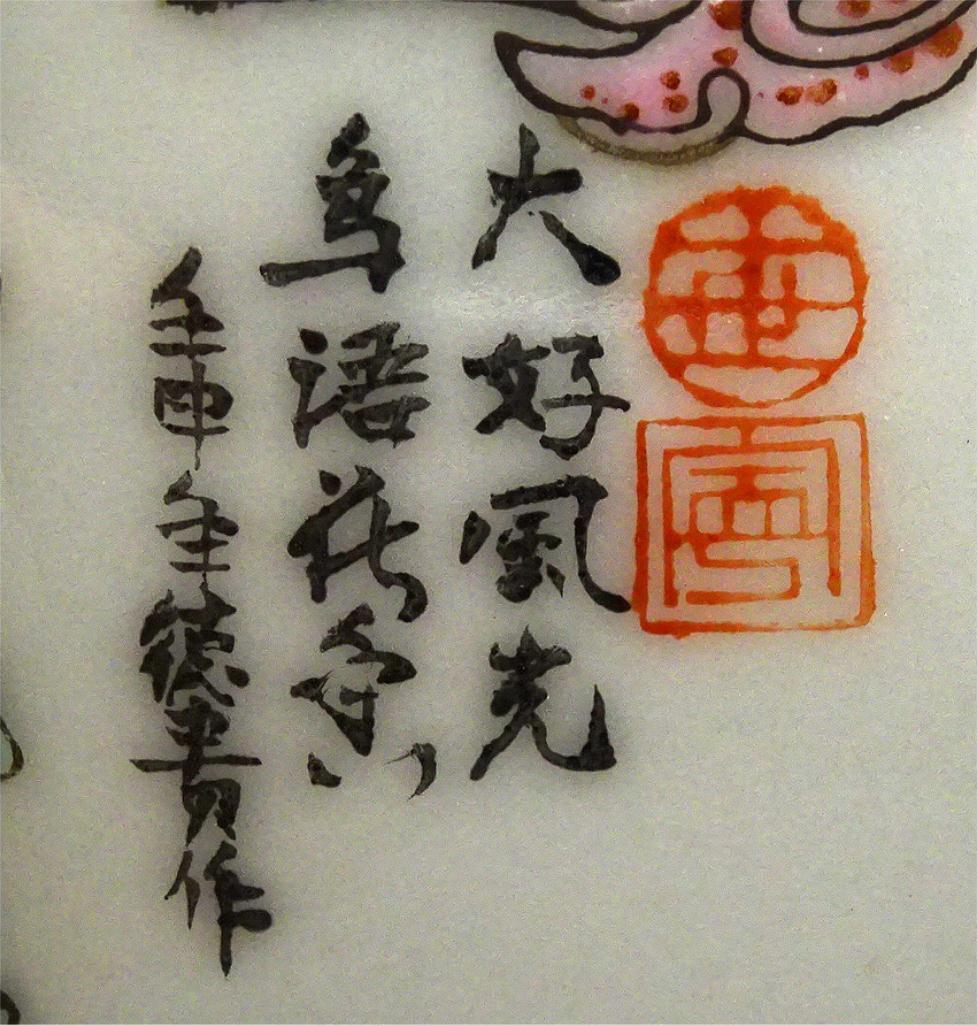 大好風光
鳥語花香
壬申年德貴作